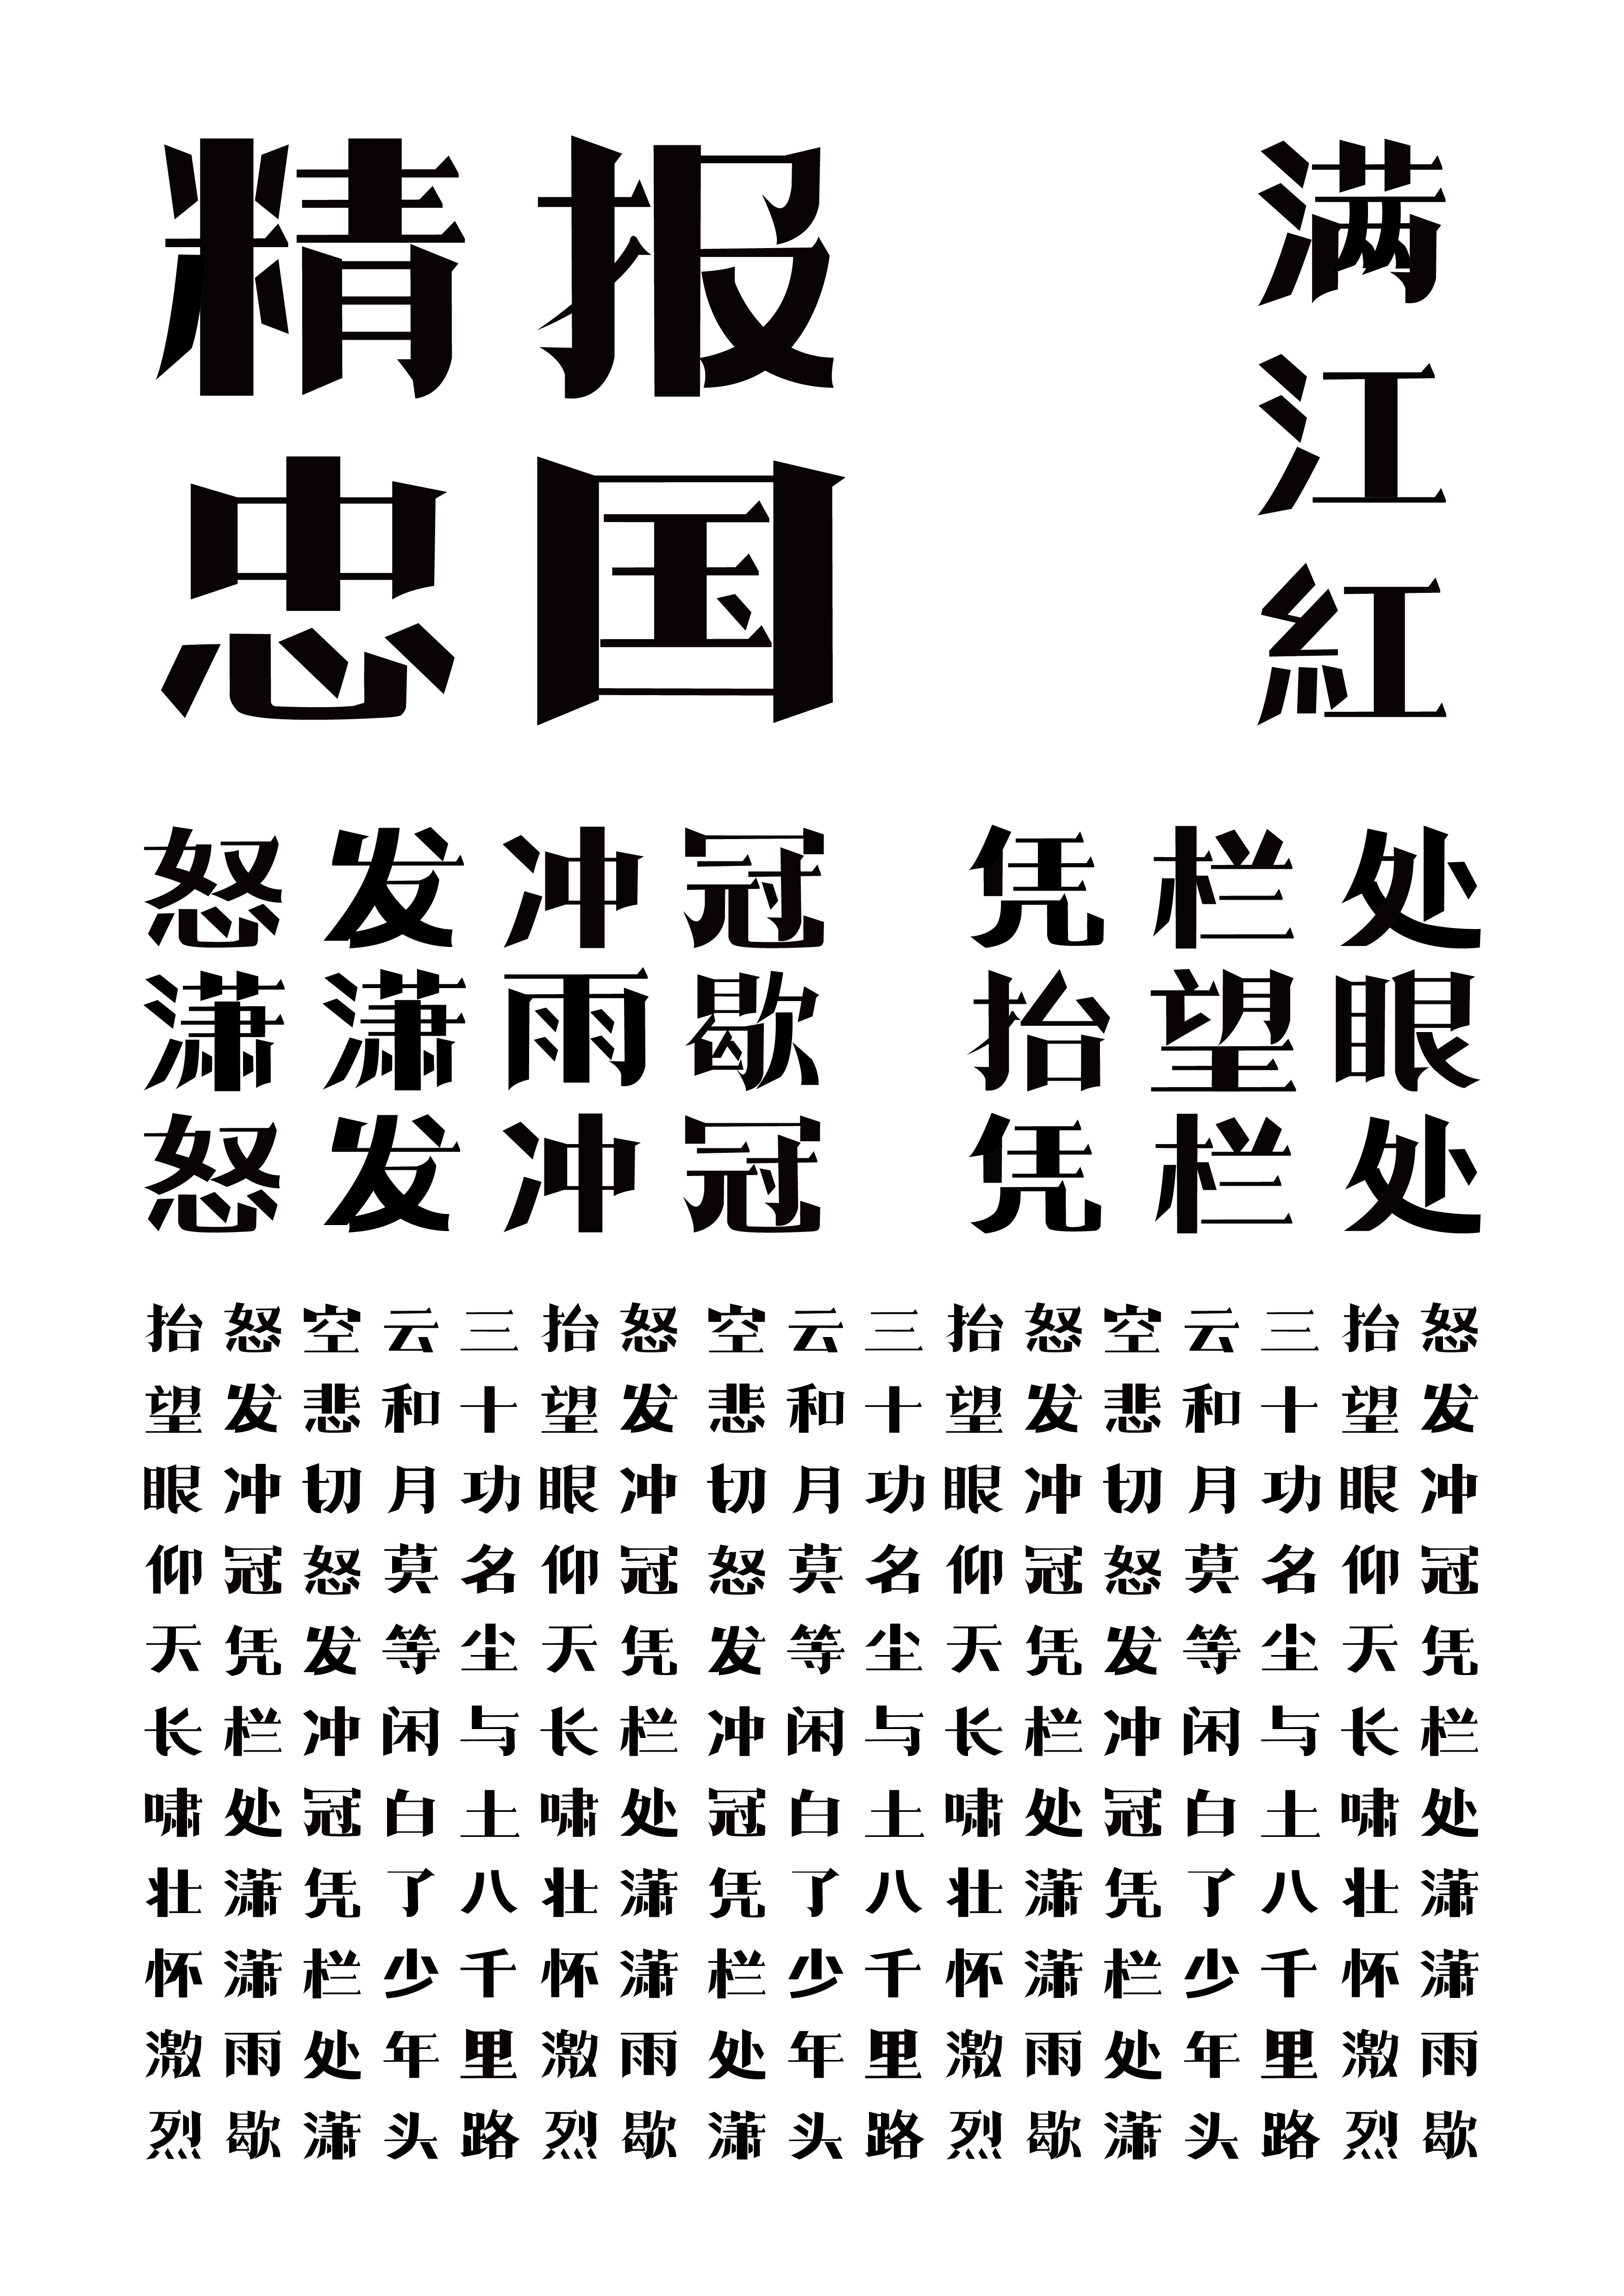 精忠
报国
满江紅
怒发冲冠 凭栏处
潇潇雨歇 抬望眼
怒发冲冠 凭栏处
怒发冲冠凭栏处潇潇雨歇
抬望眼仰天长啸壮怀激烈
三十功名尘与土八千里路
云和月莫等闲白了少年头
空悲切怒发冲冠凭栏处潇
怒发冲冠凭栏处潇潇雨歇
抬望眼仰天长啸壮怀激烈
三十功名尘与土八千里路
云和月莫等闲白了少年头
空悲切怒发冲冠凭栏处潇
怒发冲冠凭栏处潇潇雨歇
抬望眼仰天长啸壮怀激烈
三十功名尘与土八千里路
云和月莫等闲白了少年头
空悲切怒发冲冠凭栏处潇
怒发冲冠凭栏处潇潇雨歇
抬望眼仰天长啸壮怀激烈